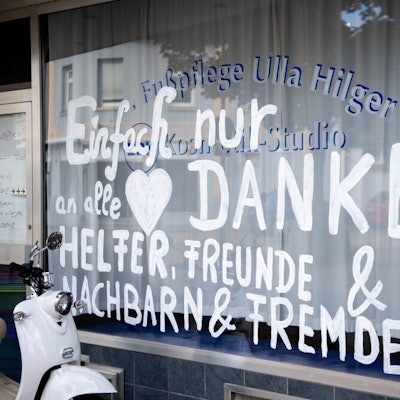 Fußpflege Ulla Hilger
-Studio
Einfach nur
an alle DANKE
HELFER, FREUNDE &
NACHBARN & FREMDE